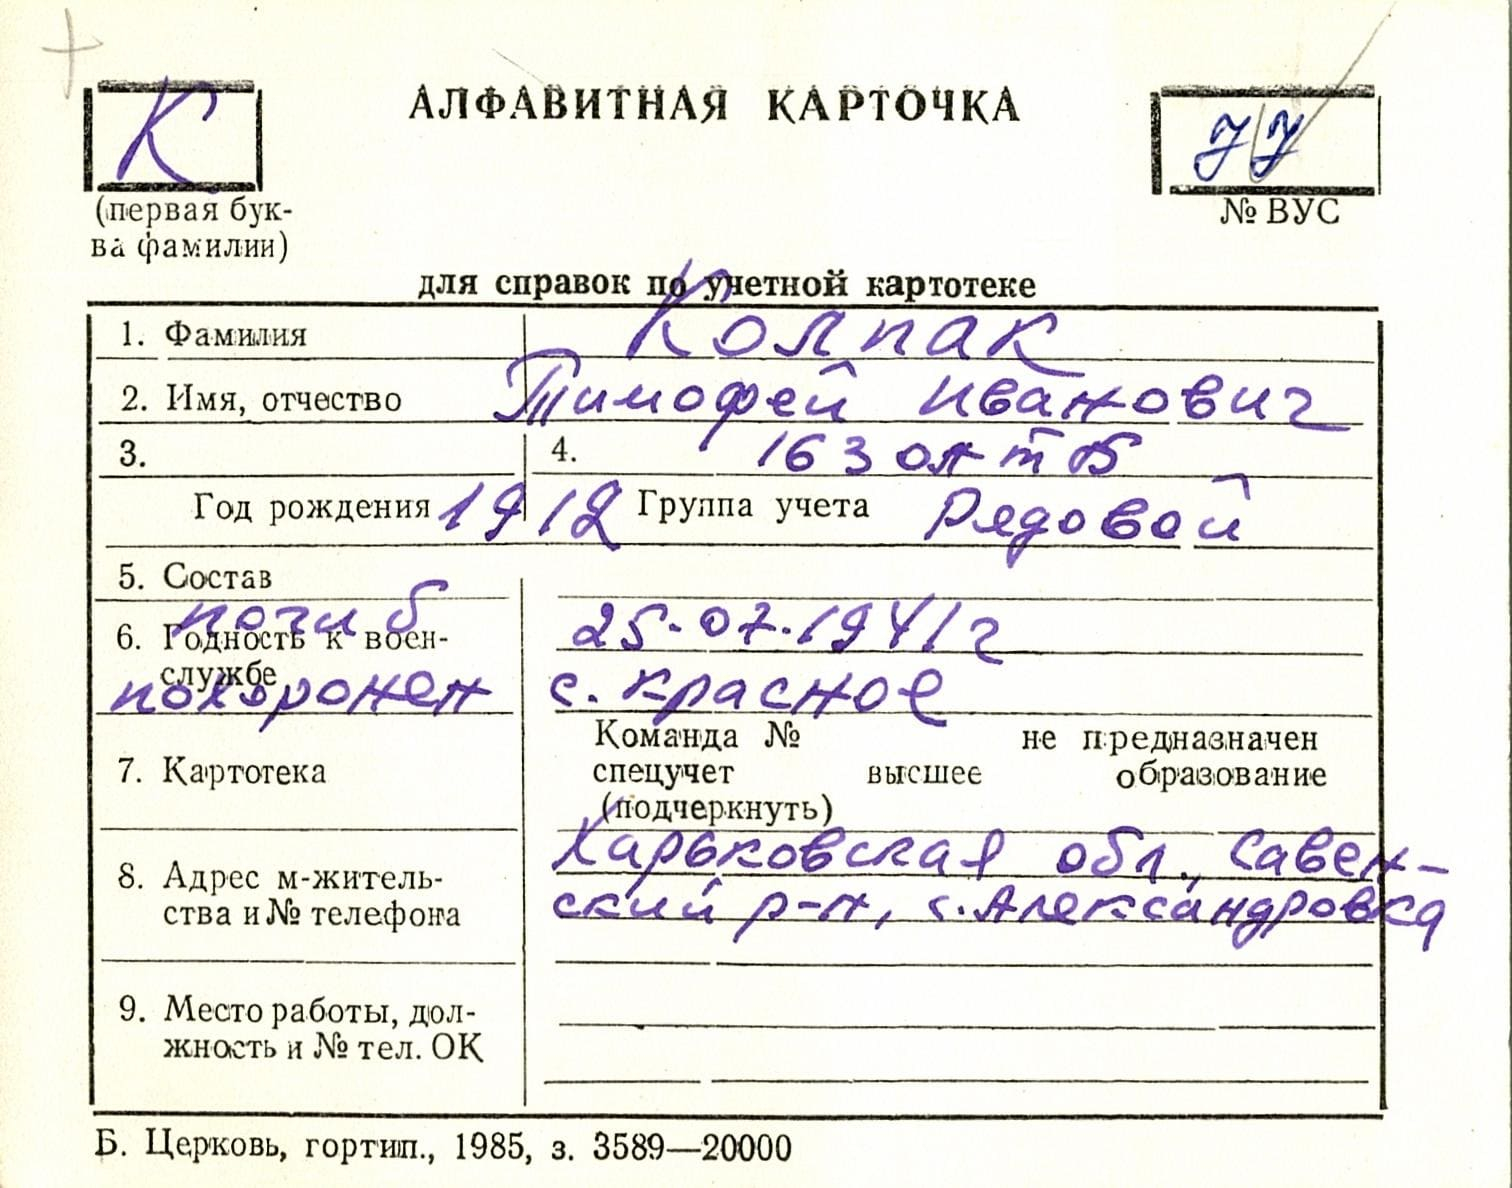 К
АЛФАВИТНАЯ КАРТОЧКА
77
(первая бук-
ва фамилии)
№ ВУС
для справок по учетной картотеке
1. Фамилия Колпак
2. Имя, отчество Тимофей Иванович
3. 4. 163
Год рождения 1912 Группа учета Рядовой
5. Состав
погиб 25.07.1941г
6. Годность к воен-
службе
похоронен с. Красное
Команда № не предназначен
7. Картотека спецучет высшее образование
(подчеркнуть)
Харьковская обл., Савен-
8. Адрес м-житель-
ства и № телефона ский р-н, с. Александровка
9. Место работы, дол-
жность и № тел. ОК
Б. Церковь, гортип., 1985, з. 3589—20000